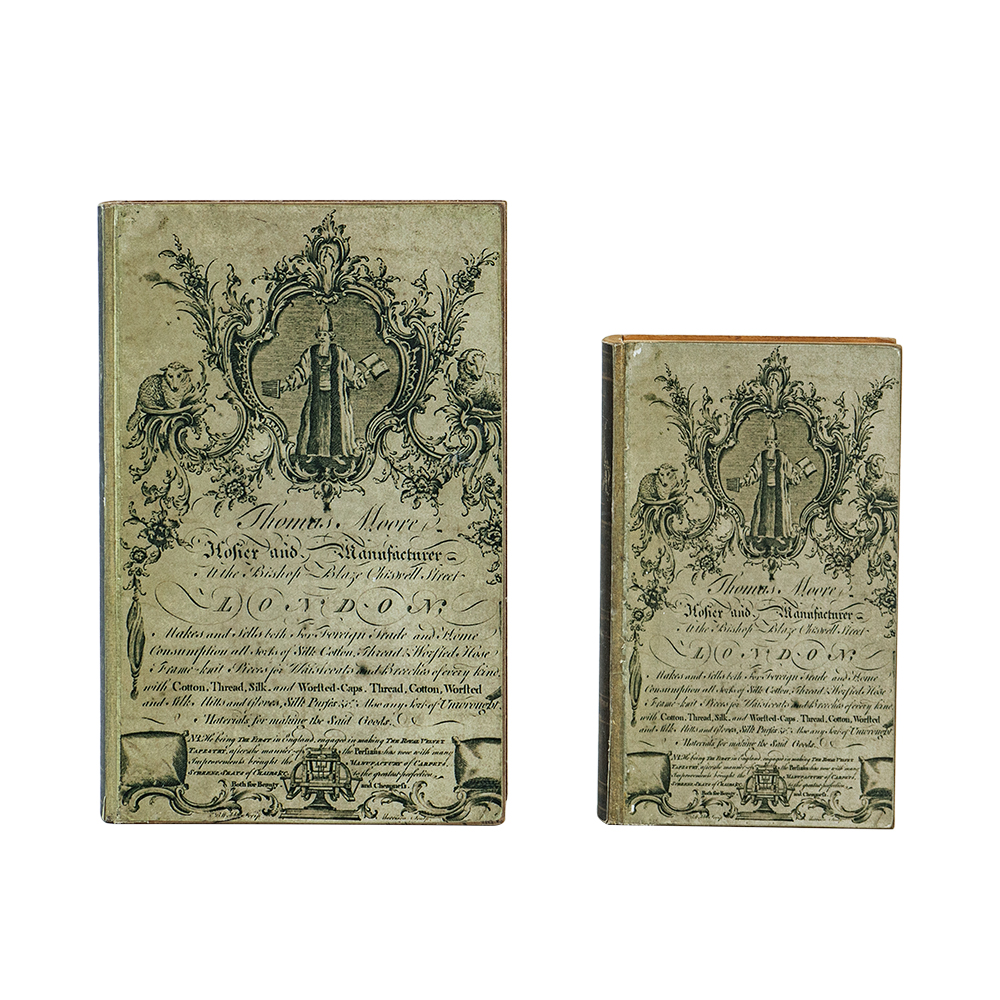 Thomas Moore,
Hosier and Manufacturer
At the Bishop Blaze Chiswell Street
LONDON,
Makes and Sells both For Foreign Trade and Home
Consumption all Sorts of Silk Cotton, Thread & Worsted Hose
Frame-knit Pieces for Waistcoats and Breeches of every kind,
with Cotton, Thread, Silk, and Worsted-Caps. Thread, Cotton, Worsted
and Silk Mitts and Gloves, Silk Purses &c. Also any Sort of Unwrought
Materials for making the Said Goods.
NB. He being The First in England, engaged in making The Royal Velvet
Tapestry, after the manner of the Persians has now with many
Improvements brought the Manufactory of Carpets,
Screens, Seats of Chairs &c. to the greatest perfection,
Both for Beauty and Cheapness.
Thomas Moore,
Hosier and Manufacturer
At the Bishop Blaze Chiswell Street
LONDON,
Makes and Sells both For Foreign Trade and Home
Consumption all Sorts of Silk Cotton, Thread & Worsted Hose
Frame-knit Pieces for Waistcoats and Breeches of every kind,
with Cotton, Thread, Silk, and Worsted-Caps. Thread, Cotton, Worsted
and Silk Mitts and Gloves, Silk Purses &c. Also any Sort of Unwrought
Materials for making the Said Goods.
NB. He being The First in England, engaged in making The Royal Velvet
Tapestry, after the manner of the Persians has now with many
Improvements brought the Manufactory of Carpets,
Screens, Seats of Chairs &c. to the greatest perfection,
Both for Beauty and Cheapness.